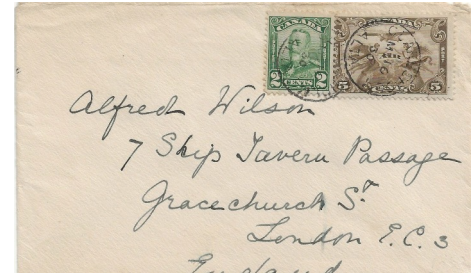 CANADA CANADA
2 CENTS 2 5 5
Alfred Wilson
7 Ship Tavern Passage
Gracechurch St
London E.C. 3
England